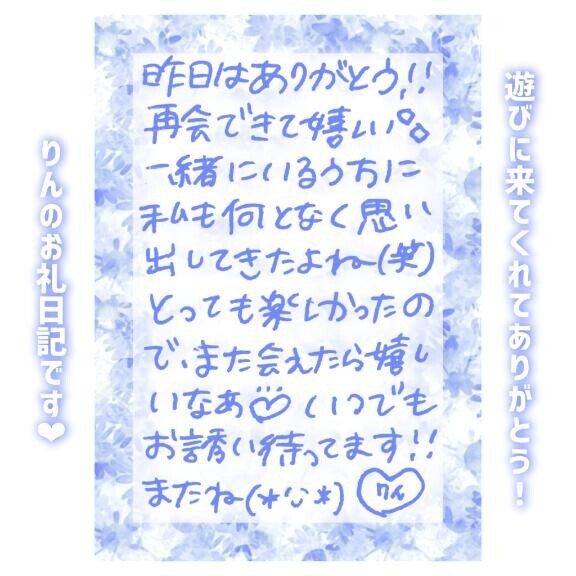 遊びに来てくれてありがとう!
昨日はありがとう!!
再会できて嬉しい
一緒にいるうちに
私も何となく思い
出してきたよねー(笑)
とっても楽しかったの
で、また会えたら嬉し
いなあ♡ いつでも
お誘い待ってます!!
またね(*'ᵕ'*)
りんのお礼日記です❤